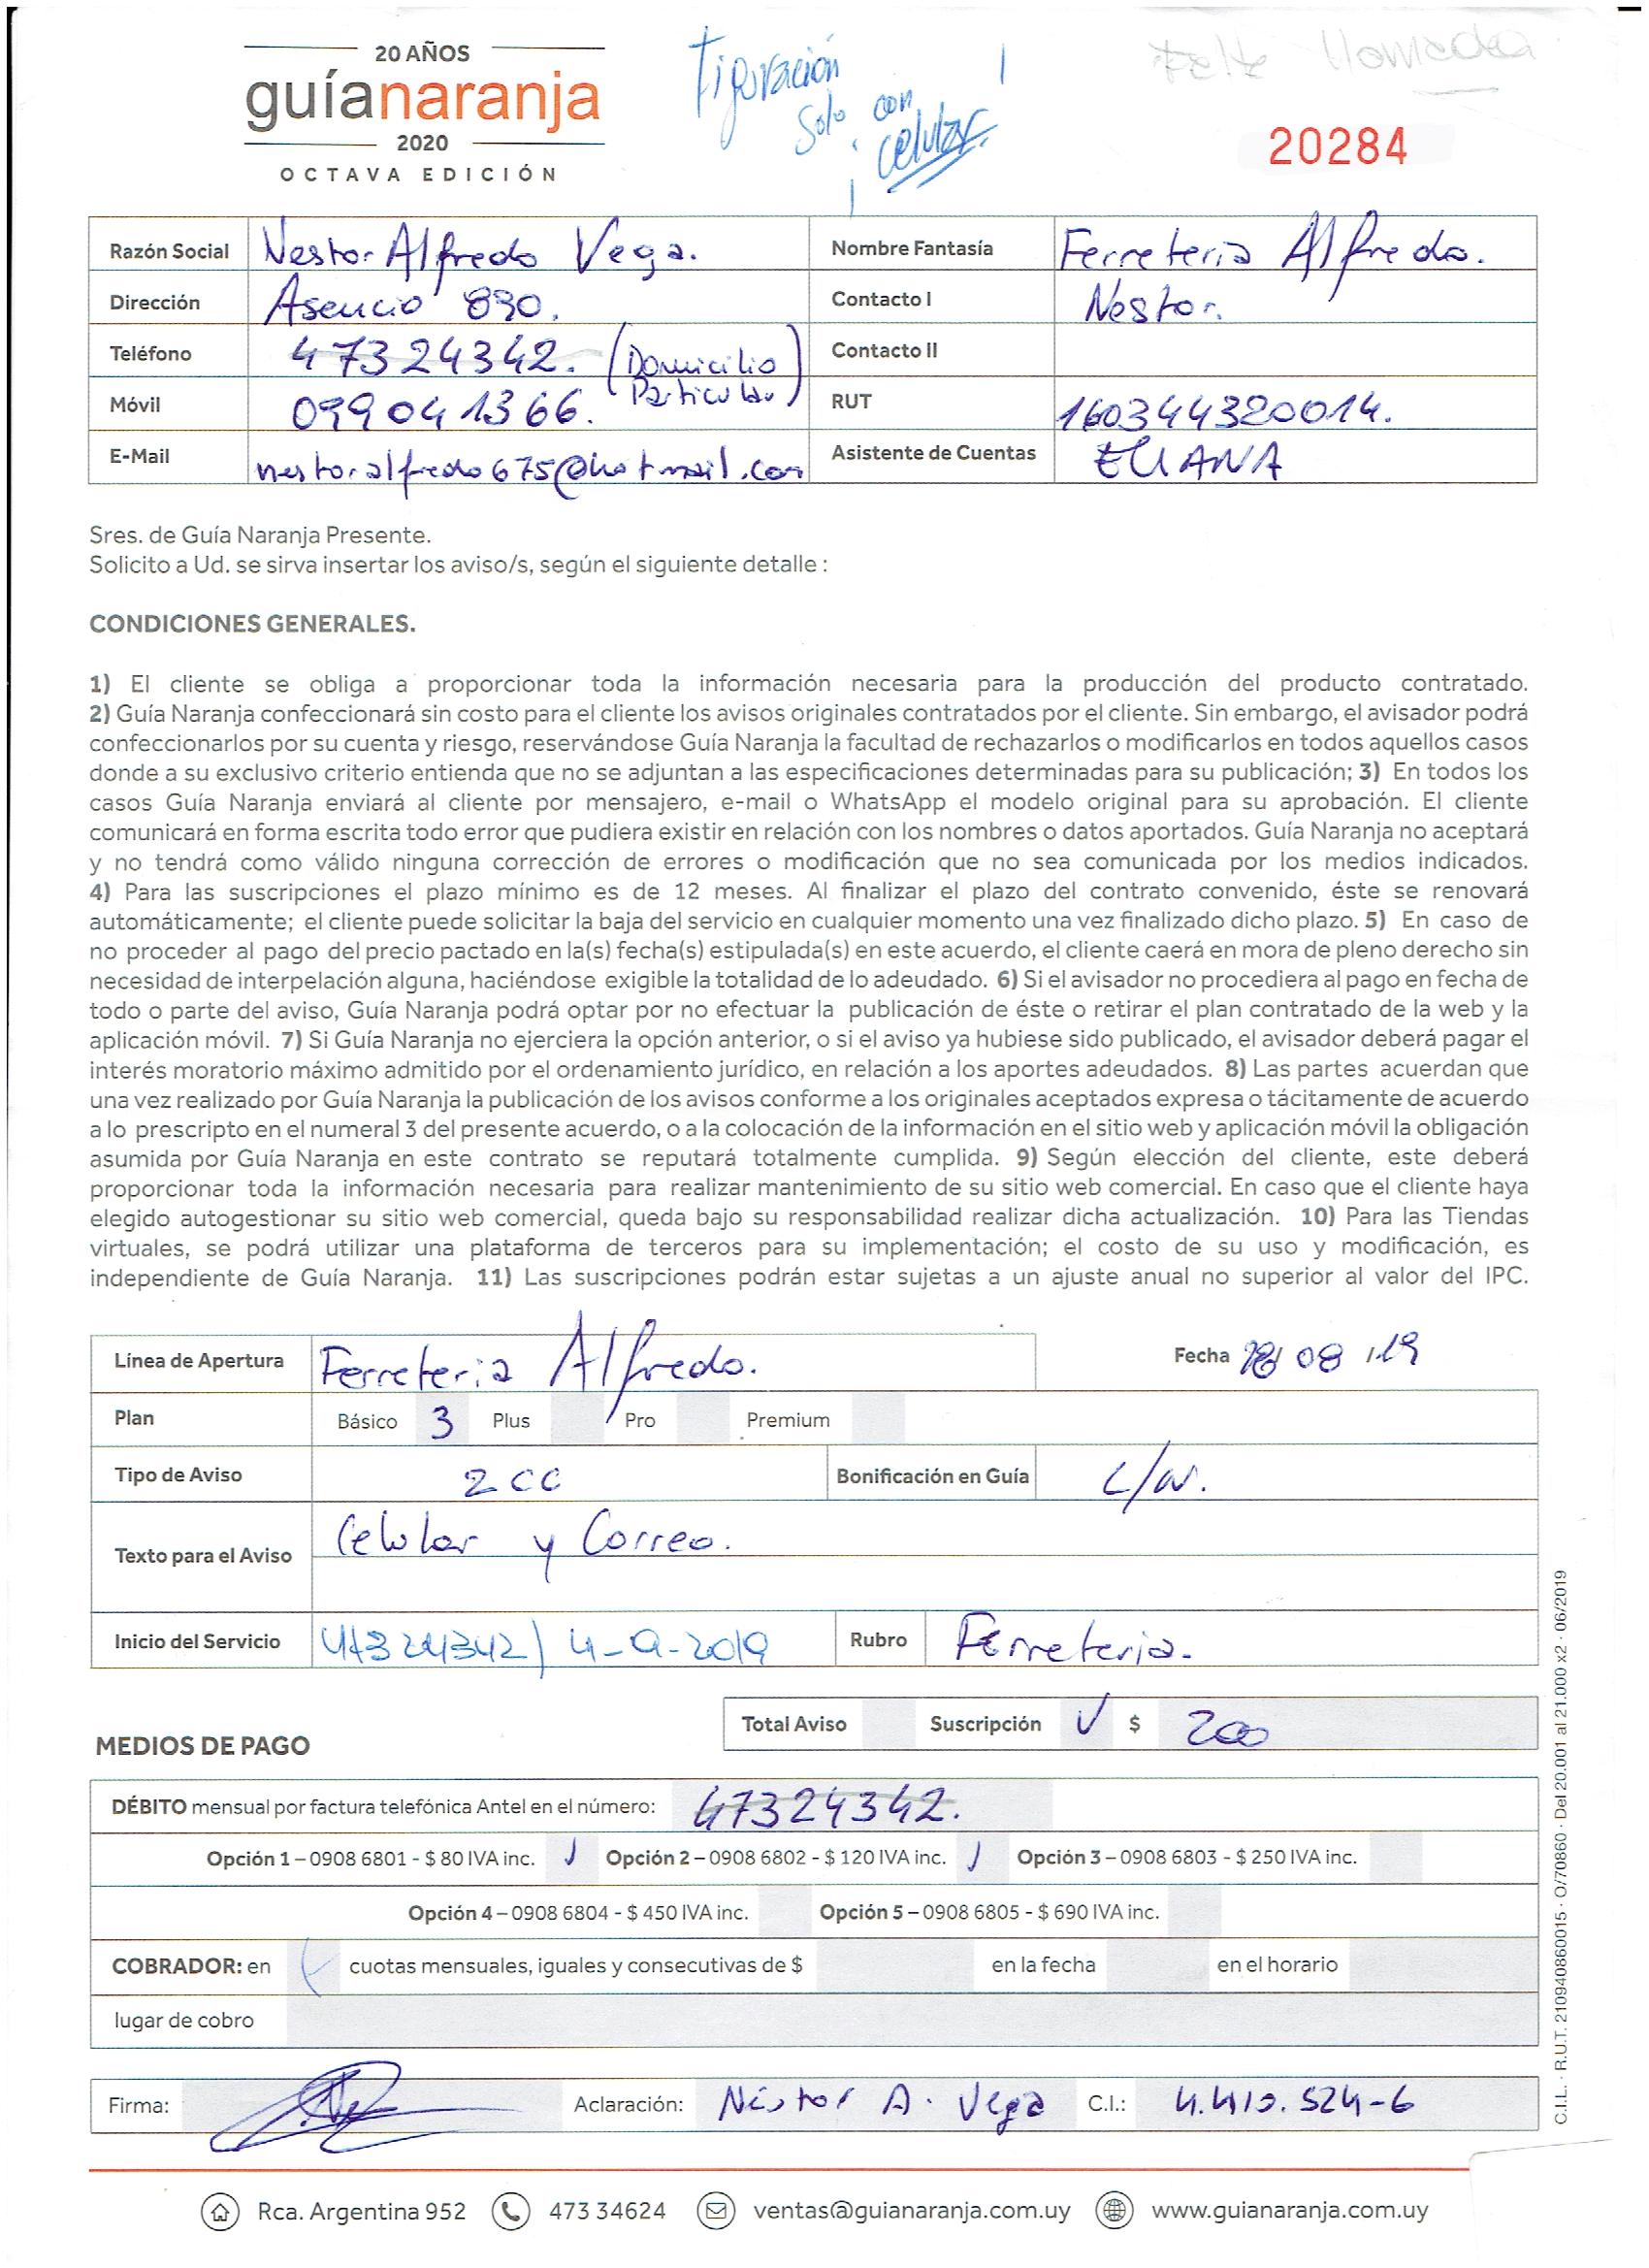 20 AÑOS
guíanaranja
2020
OCTAVA EDICIÓN
Figuración
solo con
celular.
Falta llamada
20284
Razón Social Nestor Alfredo Vega. Nombre Fantasía Ferreteria Alfredo.
Dirección Asencio 890. Contacto I Nestor.
Teléfono 47324342. (Domicilio Particular) Contacto II
Móvil 099041366. RUT 160344320014.
E-Mail nestoralfredo675@hotmail.com Asistente de Cuentas ELIANA
Sres. de Guía Naranja Presente.
Solicito a Ud. se sirva insertar los aviso/s, según el siguiente detalle :
CONDICIONES GENERALES.
1) El cliente se obliga a proporcionar toda la información necesaria para la producción del producto contratado.
2) Guía Naranja confeccionará sin costo para el cliente los avisos originales contratados por el cliente. Sin embargo, el avisador podrá
confeccionarlos por su cuenta y riesgo, reservándose Guía Naranja la facultad de rechazarlos o modificarlos en todos aquellos casos
donde a su exclusivo criterio entienda que no se adjuntan a las especificaciones determinadas para su publicación; 3) En todos los
casos Guía Naranja enviará al cliente por mensajero, e-mail o WhatsApp el modelo original para su aprobación. El cliente
comunicará en forma escrita todo error que pudiera existir en relación con los nombres o datos aportados. Guía Naranja no aceptará
y no tendrá como válido ninguna corrección de errores o modificación que no sea comunicada por los medios indicados.
4) Para las suscripciones el plazo mínimo es de 12 meses. Al finalizar el plazo del contrato convenido, éste se renovará
automáticamente; el cliente puede solicitar la baja del servicio en cualquier momento una vez finalizado dicho plazo. 5) En caso de
no proceder al pago del precio pactado en la(s) fecha(s) estipulada(s) en este acuerdo, el cliente caerá en mora de pleno derecho sin
necesidad de interpelación alguna, haciéndose exigible la totalidad de lo adeudado. 6) Si el avisador no procediera al pago en fecha de
todo o parte del aviso, Guía Naranja podrá optar por no efectuar la publicación de éste o retirar el plan contratado de la web y la
aplicación móvil. 7) Si Guía Naranja no ejerciera la opción anterior, o si el aviso ya hubiese sido publicado, el avisador deberá pagar el
interés moratorio máximo admitido por el ordenamiento jurídico, en relación a los aportes adeudados. 8) Las partes acuerdan que
una vez realizado por Guía Naranja la publicación de los avisos conforme a los originales aceptados expresa o tácitamente de acuerdo
a lo prescripto en el numeral 3 del presente acuerdo, o a la colocación de la información en el sitio web y aplicación móvil la obligación
asumida por Guía Naranja en este contrato se reputará totalmente cumplida. 9) Según elección del cliente, este deberá
proporcionar toda la información necesaria para realizar mantenimiento de su sitio web comercial. En caso que el cliente haya
elegido autogestionar su sitio web comercial, queda bajo su responsabilidad realizar dicha actualización. 10) Para las Tiendas
virtuales, se podrá utilizar una plataforma de terceros para su implementación; el costo de su uso y modificación, es
independiente de Guía Naranja. 11) Las suscripciones podrán estar sujetas a un ajuste anual no superior al valor del IPC.
Línea de Apertura Ferreteria Alfredo. Fecha 28/ 08 /19
Plan Básico 3 Plus Pro Premium
Tipo de Aviso 2 CC Bonificación en Guía L/N.
Texto para el Aviso Celular y Correo.
Inicio del Servicio 47324342 / 4-9-2019 Rubro Ferreteria.
Total Aviso Suscripción ✓ $ 200
MEDIOS DE PAGO
DÉBITO mensual por factura telefónica Antel en el número: 47324342.
Opción 1 – 0908 6801 - $ 80 IVA inc. ✓ Opción 2 – 0908 6802 - $ 120 IVA inc. ✓ Opción 3 – 0908 6803 - $ 250 IVA inc.
Opción 4 – 0908 6804 - $ 450 IVA inc. Opción 5 – 0908 6805 - $ 690 IVA inc.
COBRADOR: en cuotas mensuales, iguales y consecutivas de $ en la fecha en el horario
lugar de cobro
Firma: Aclaración: Néstor A. Vega C.I.: 4.410.524-6
Rca. Argentina 952 473 34624 ventas@guianaranja.com.uy www.guianaranja.com.uy
C.I.L. · R.U.T. 210940860015 · O/70860 · Del 20.001 al 21.000 x2 · 06/2019